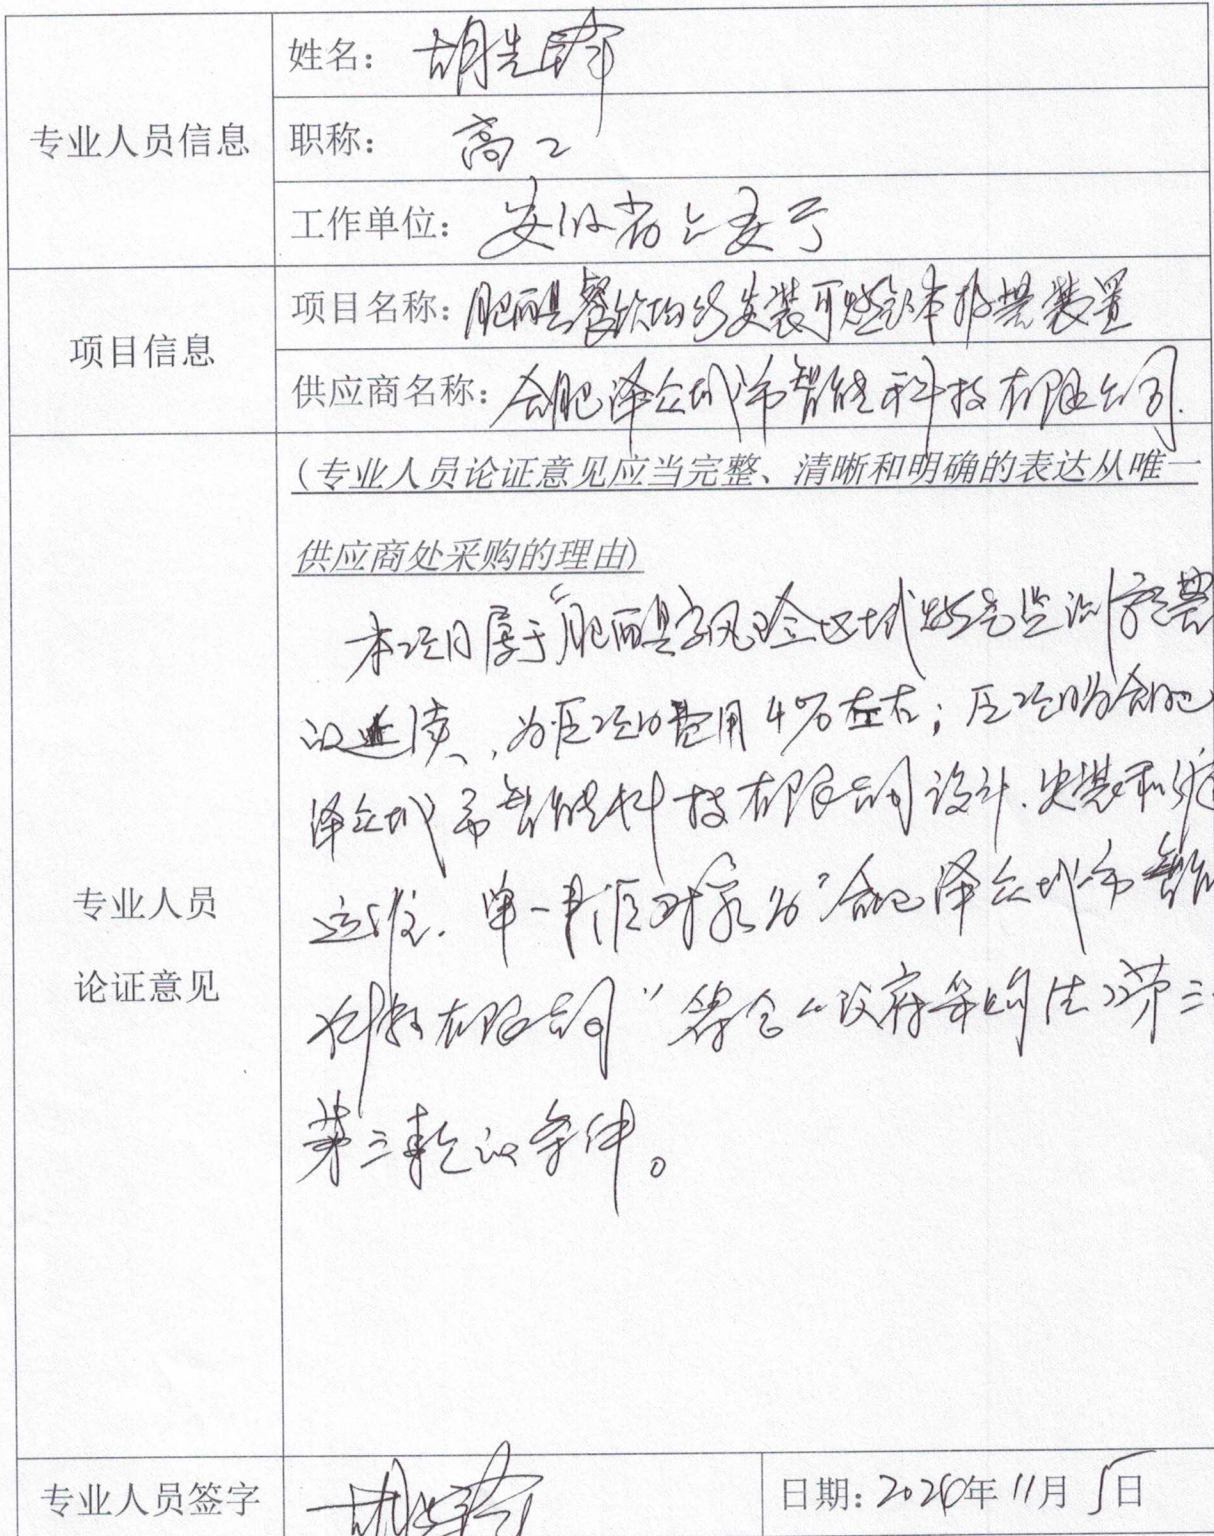 专业人员信息
姓名：胡先
职称：高工
工作单位：安徽省公安厅
项目信息
项目名称：肥西县餐饮场所安装可燃气体报警装置
供应商名称：合肥泽众城市智能科技有限公司.
专业人员
论证意见
(专业人员论证意见应当完整、清晰和明确的表达从唯一
供应商处采购的理由)
本项目属于“肥西县高风险区域燃气监测预警
的延续，为原项目费用4%左右；原项目为合肥
泽众城市智能科技有限公司设计.安装和
运维.单一来源对象为“合肥泽众城市智能
科技有限公司”符合《政府采购法》第三
第三款的条件。
专业人员签字
日期：2024年11月5日